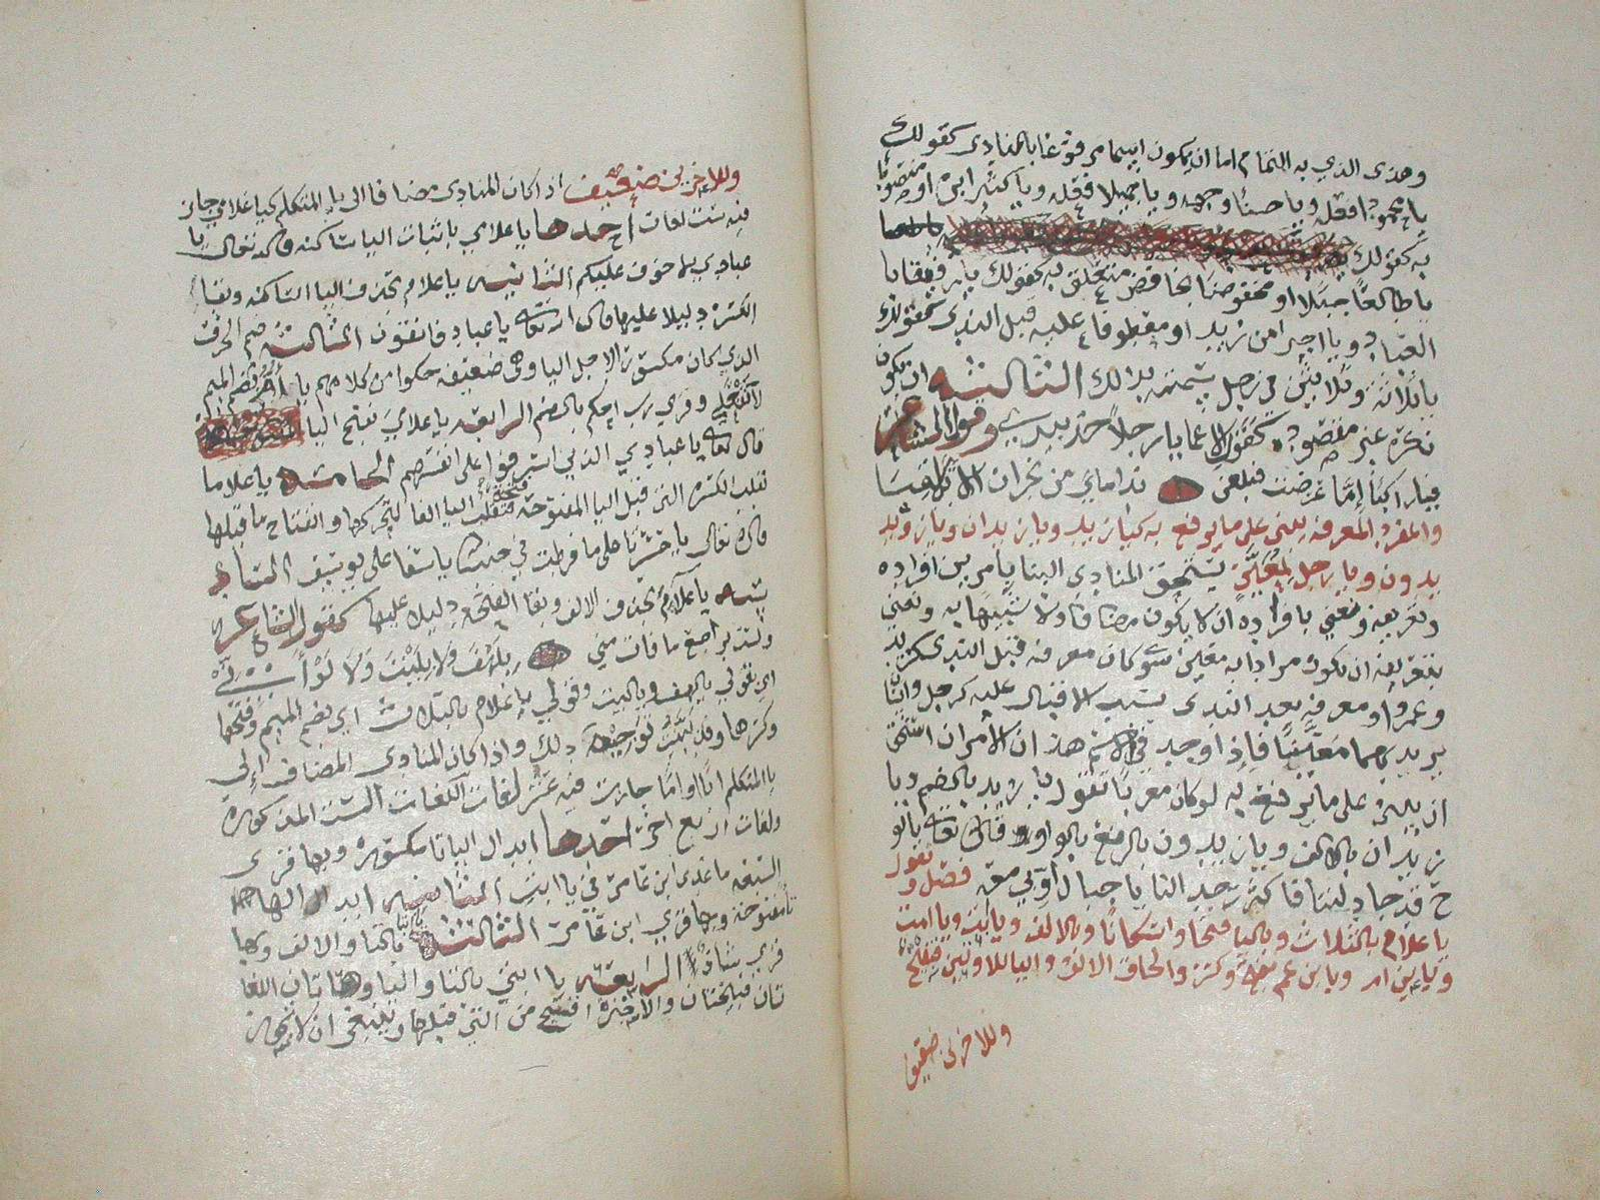 وهذى الذي به التمام اما ان يكون اسما مرفوعا بالمنادى كقولك
يا محمودا فعله ويا حسنا وجهه ويا جميلا فعله ويا كثيرا بره او منصوبا
به كقولك
يا طالعا جبلا او مخفوضا بخافض متعلق به كقولك يا رفيقا با
العباد ويا خيرا من زيد او معطوفا عليه قبل الندى كقولك
يا ثلاثة وثلاثين في رجل سميته بذلك الثالثه ان يكون
نكرة غير مقصوده كقول الاعمى يا رجلا خذ بيدي وقول الشاعر
فيا راكبا اما عرضت فبلغن نداماي من نجران ان لا تلاقيا
والمفرد المعرفه يبنى على ما يرفع به كيا زيد ويا زيدان ويا زيد
يدون ويا رجل لمعين يستحق المنادى البنا بامرين افراده
وتعريفه ونعني بافراده ان لا يكون مضافا ولا شبيها به ونعني
بتعريفه ان يكون مرادا به معين سوى كان معرفه قبل الندى كزيد
وعمرو او معرفه بعد الندى بسبب الاقبال عليه كرجل وانسان
يريد بهما معينا فاذا وجد في الاسم هذان الامران استحق
ان يبنى على ما يرفع به لو كان معربا تقول يا زيد بالضم ويا
زيدان بالالف ويا زيدون بالرفع بالواو قال تعالى يا نو
ح قد جادلتنا فاكثرت جدالنا يا جبال اوبي معه فصل وتقول
يا غلام بالثلاث وباليا فتحا واسكانا وبالالف ويا ابت ويا امت
ويا ابن ام ويا ابن عم بفتح وكسر والحاق الالف واليا للاولين قبيح
وللاخرين ضعيف
وللاخرين ضعيف اذا كان المنادى مضافا الى يا المتكلم كيا غلامي جاز
فيه ست لغات احدها يا غلامي باثبات اليا الساكنه قال تعالى يا
عبادي لا خوف عليكم الثانيه يا غلام بحذف اليا الساكنه وبقا
الكسرة دليلا عليها قال تعالى يا عباد فاتقون الثالثه ضم الحرف
الذي كان مكسورا لاجل اليا وهي ضعيفه حكوا من كلامهم يا ام بضم الميم
لا تفعلي وقري رب احكم بالضم الرابعه يا غلامي بفتح اليا
قال تعالى يا عبادي الذين اسرفوا على انفسهم الخامسه يا غلاما
تقلب الكسرة التي قبل اليا المفتوحة فتحة فتقلب اليا الفا لتحركها وانفتاح ما قبلها
قال تعالى يا حسرتا على ما فرطت في جنب الله يا اسفا على يوسف السا
دسه يا غلام بحذف الالف وبقا الفتحه دليلا عليها كقول الشاعر
ولست براجع ما فات مني بلهف ولا بليت ولا لو اني
اي بقولي يا لهف ويا ليت وقولي يا غلام بالثلاث اي بضم الميم وفتحها
وكسرها وقد بينت توجيه ذلك واذا كان المنادى المضاف الى
يا المتكلم ابا او اما جازت فيه عشر لغات اللغات الست المذكورة
ولغات اربع اخر احدها ابدال اليا تا مكسوره وبها قرى
السبعه ما عدى ابن عامر في يا ابت الثانيه ابدال اليا
تا مفتوحة وبها قري ابن عامر الثالثه يا ابتا بالتا والالف وبها
قري شاذا الرابعه يا ابتي بالتا واليا وهاتان اللغا
تان قبيحتان والاخيرة اقبح من التي قبلها وينبغي ان لا تجوز